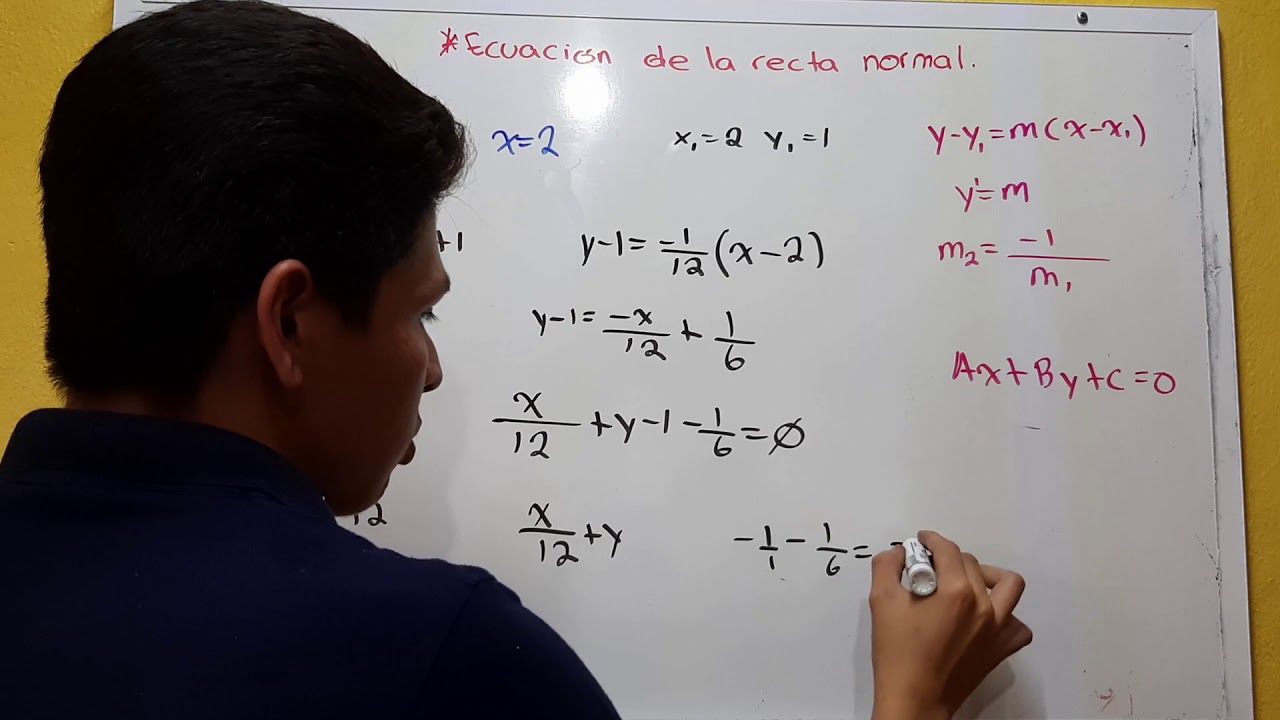 *Ecuación de la recta normal.
x=2
x₁=2 y₁=1
y-y₁=m(x-x₁)
y'=m
+1
y-1=-1/12(x-2)
m₂=-1/m₁
y-1=-x/12+1/6
Ax+By+C=0
x/12+y-1-1/6=∅
12
x/12+y
-1/1-1/6=